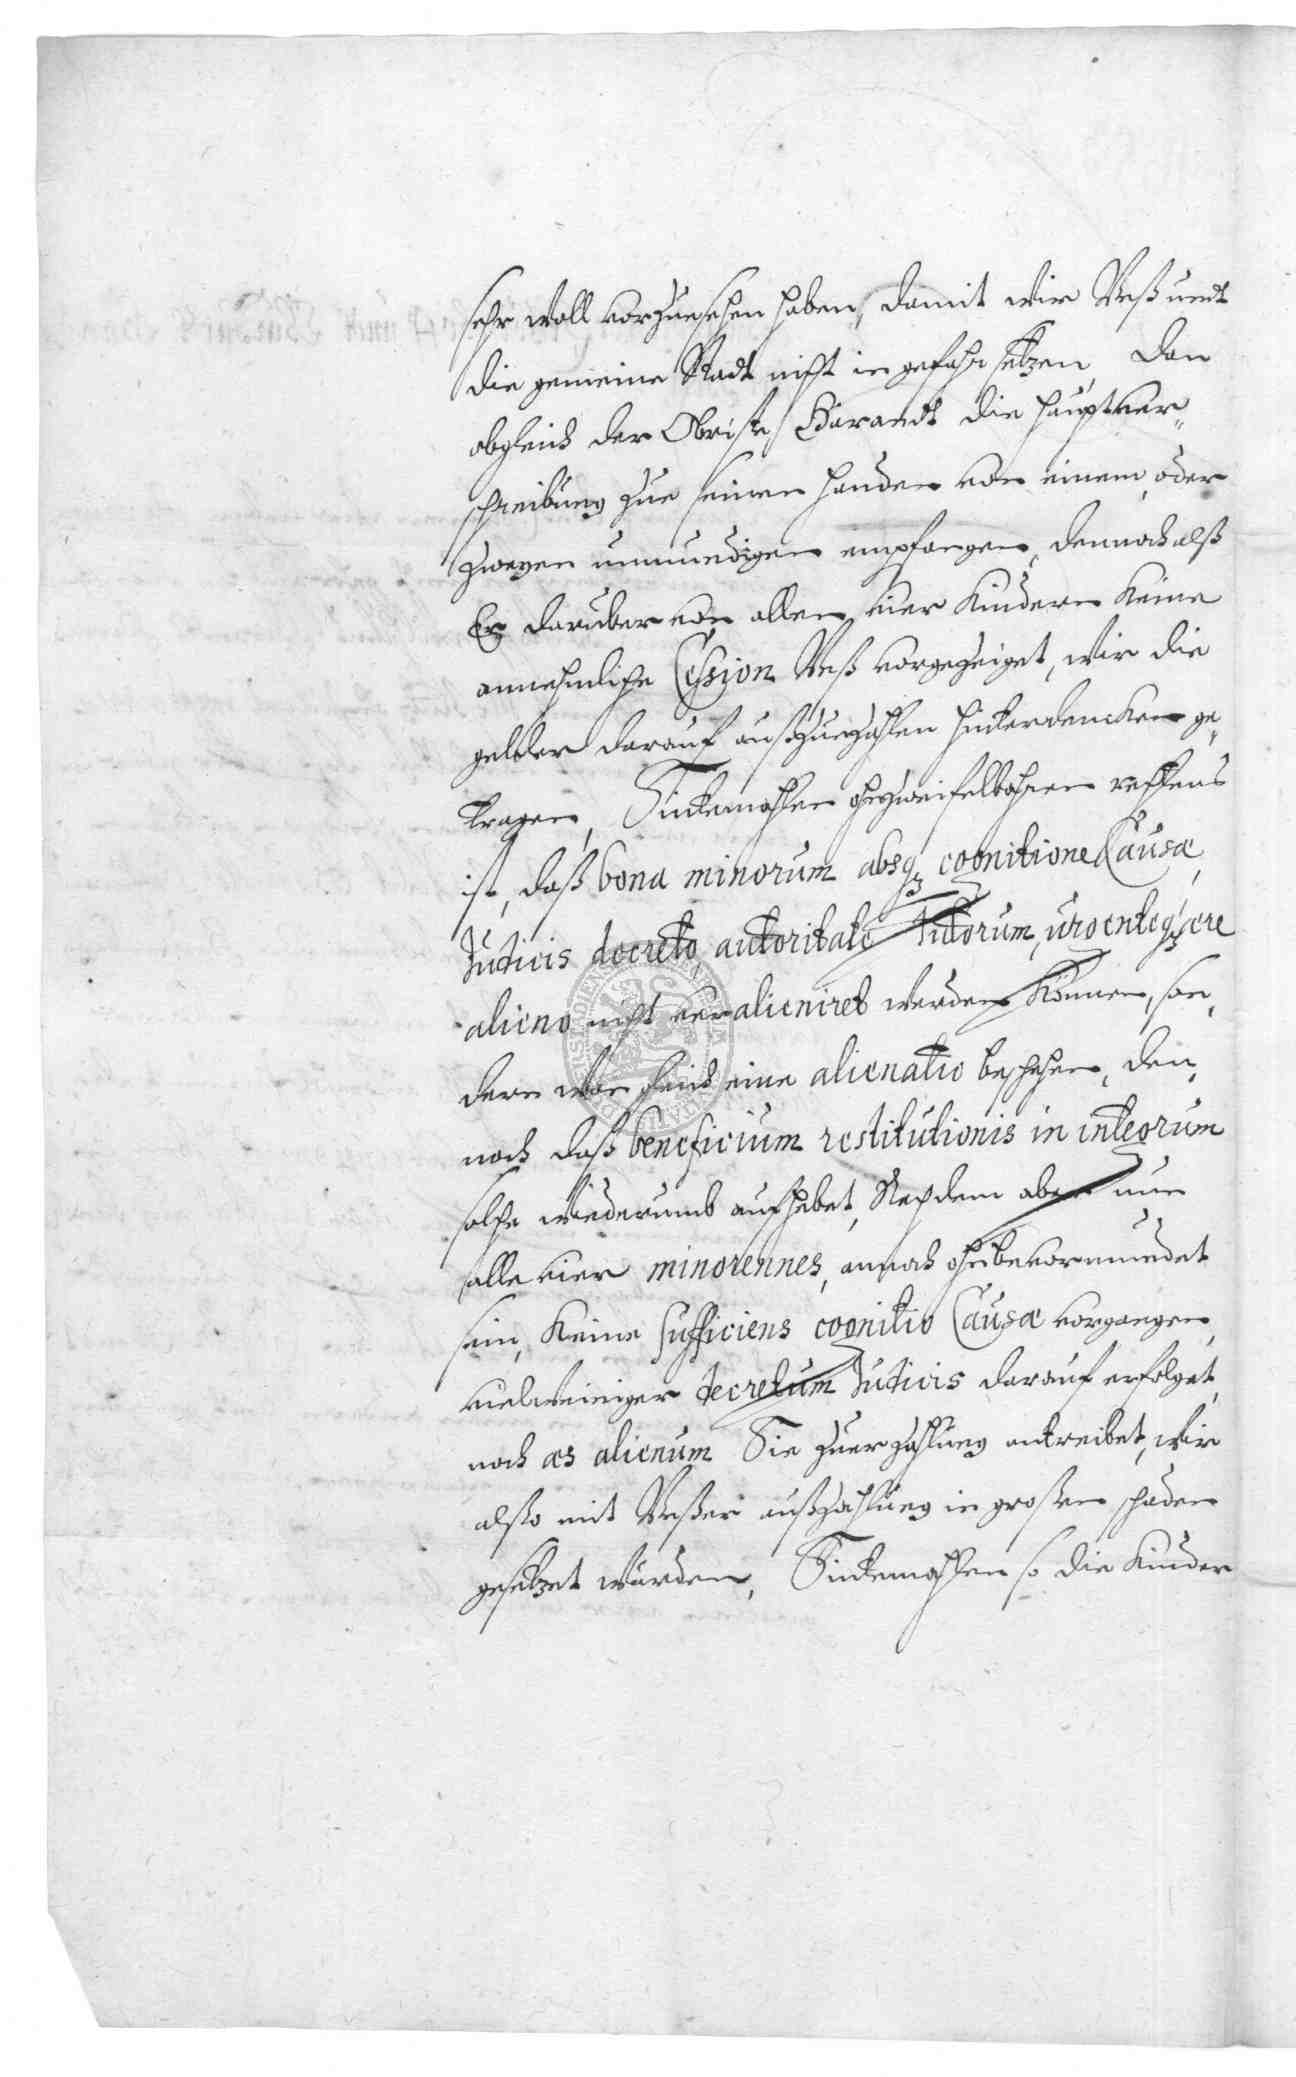 sehr woll vorzuesehen haben, damit wir Unß undt
die gemeine Stadt nicht in gefahr setzen, Dan
obgleich der Obriste Barandt die hauptver„
schreibung zue seinen handen von einem, oder
zweyen unmundigen empfangen, dennoch alß
Er daruber von allen vier Kindern Keine
annehmliche Cession Unß vorgezeiget, wir die
gelder darauf außzuezahlen hinterdencken ge„
tragen, Sintemahlen ohnzweifelbahren rechtens
ist, daß bona minorum absq₃ cognitione Causæ,
Judicis decreto, autoritate tutorum, urgenteq₃ ære
alieno nicht veralieniret werden Können, son„
dern wan gleich eine alienatio beschehen, den„
noch daß beneficium restitutionis in integrum
solche wiederumb aufhebet, Nachdem aber nun
alle vier minorennes, annoch ohnbevormundet
sein, Keine sufficiens cognitio Causæ vorgangen,
vielweiniger decretum Judicis darauf erfolget,
noch æs alienum Sie zuer zahlung antreibet, Wir
alßo mit Unßer außzahlung in großen schaden
gesetzet würden, Sintemahlen so die Kinder